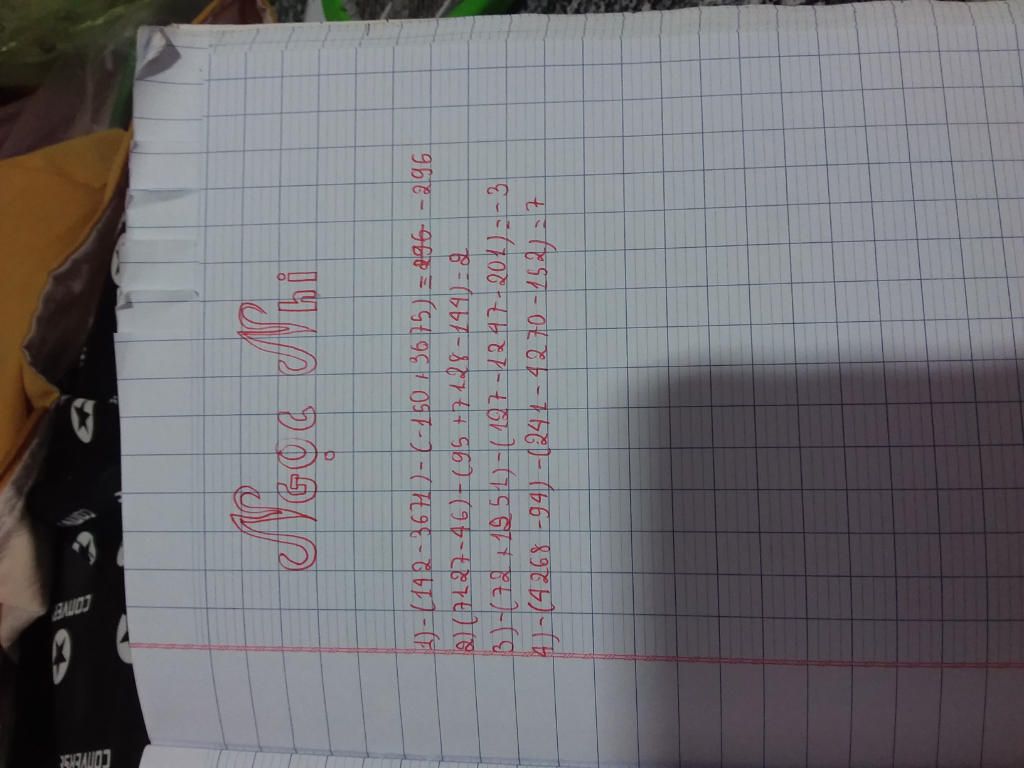 Ngọc Nhi
1) -(142-3671)-(-150+3675) = 296 -296
2) (7127-46)-(95+7128-144)=2
3) -(72+1251)-(127-1247-201)=-3
4) -(4268-94)-(241-4270-152)=7
CONVERSE